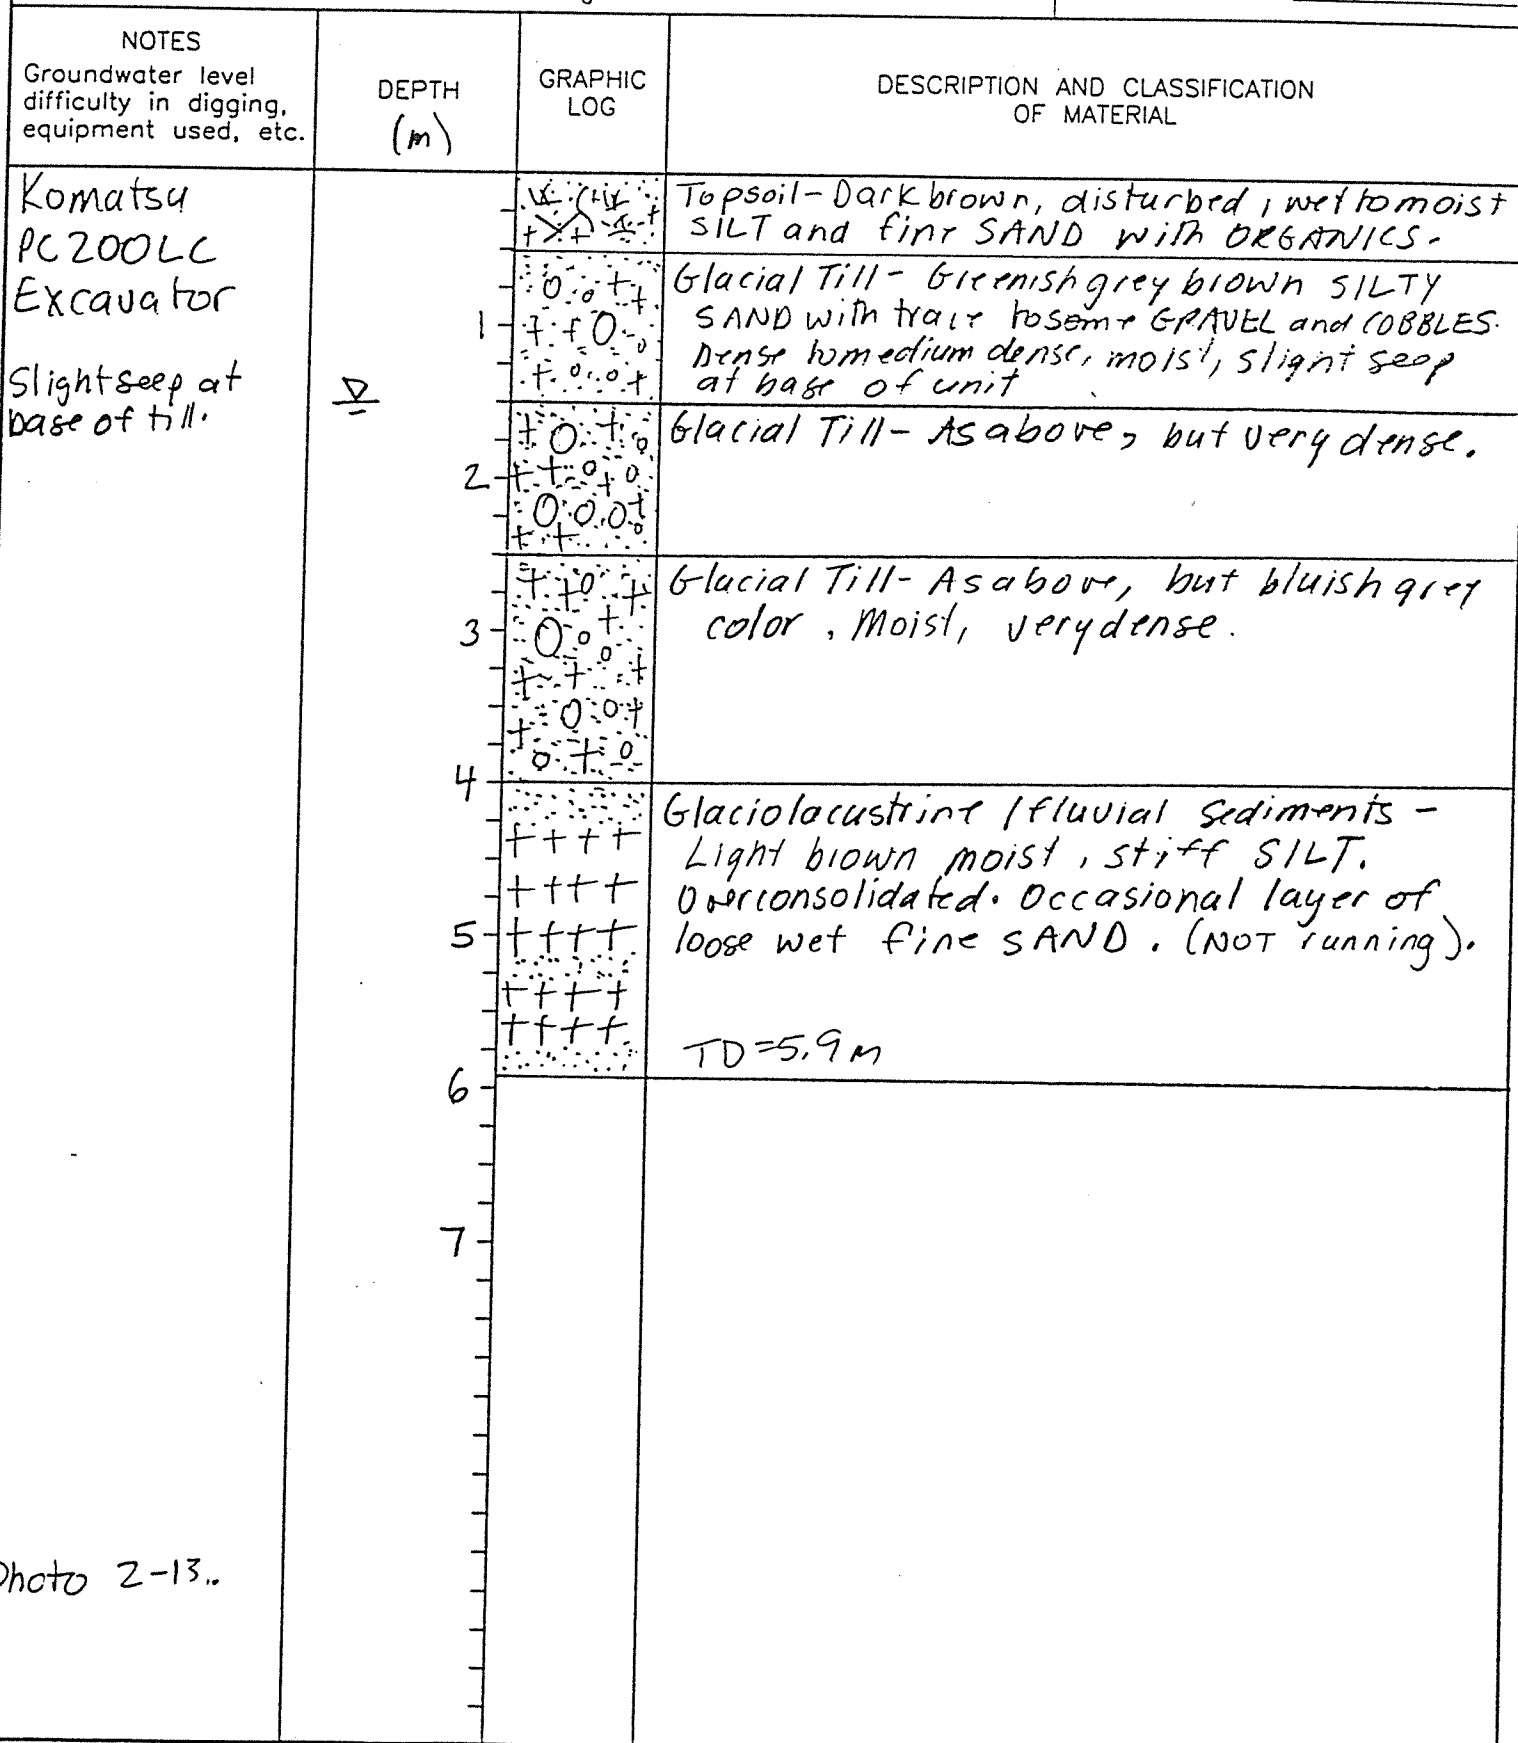 NOTES
Groundwater level
difficulty in digging,
equipment used, etc.
DEPTH
(m)
GRAPHIC
LOG
DESCRIPTION AND CLASSIFICATION
OF MATERIAL
Komatsu
PC200LC
Excavator
Slight seep at
base of till.
Topsoil - Dark brown, disturbed, wet to moist
SILT and fine SAND with ORGANICS.
Glacial Till - Greenish grey brown SILTY
SAND with trace to some GRAVEL and COBBLES.
Dense to medium dense, moist, slight seep
at base of unit
1
Glacial Till - As above, but very dense.
2
Glacial Till - As above, but bluish grey
color. Moist, very dense.
3
4
Glaciolacustrine / fluvial sediments -
Light brown moist, stiff SILT.
Overconsolidated. Occasional layer of
loose wet fine SAND. (NOT running).
5
TD=5.9m
6
7
Photo 2-13..